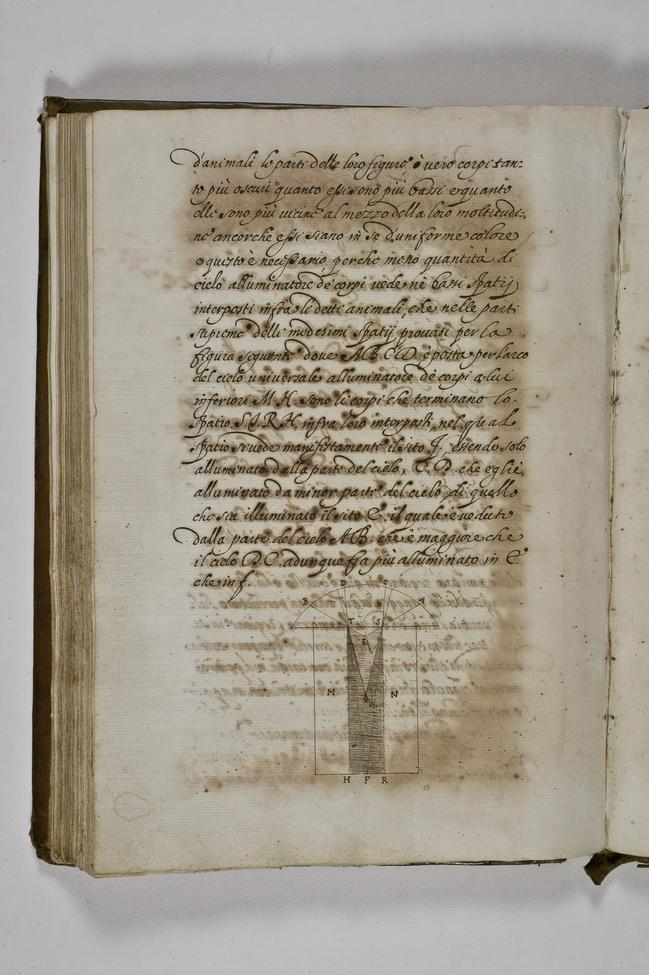 d'animali le parti delle loro figure, ò vero corpi tan:
to più oscuri quanto essi sono più bassi e quanto
elle sono più vicine al mezzo della loro moltitudi:
ne ancorche essi siano in se d'uniforme colore
e questo è necessario perche meno quantità di
cielo alluminatore de corpi vede ne bassi spatij
interposti infra li detti animali, che nelle parti
supreme delli medesimi spatij provasi per la
figura sequente dove A.B.C.D. è posta per l'arco
del cielo universale alluminatore de corpi a lui
inferiori M.H. sono li corpi che terminano lo
spatio S.T.R.H. infra loro interposti nel quale
spatio si vede manifestamente il sito F. essendo solo
alluminato dalla parte del cielo, C.D. che egli è
alluminato da minor parte del cielo di quello
che sia illuminato il sito E. il quale è veduto
dalla parte del cielo A.B. che è maggiore che
il cielo D.C. adunque fia più alluminato in E.
che in f.
B D C A
T S
E
M N
H F R